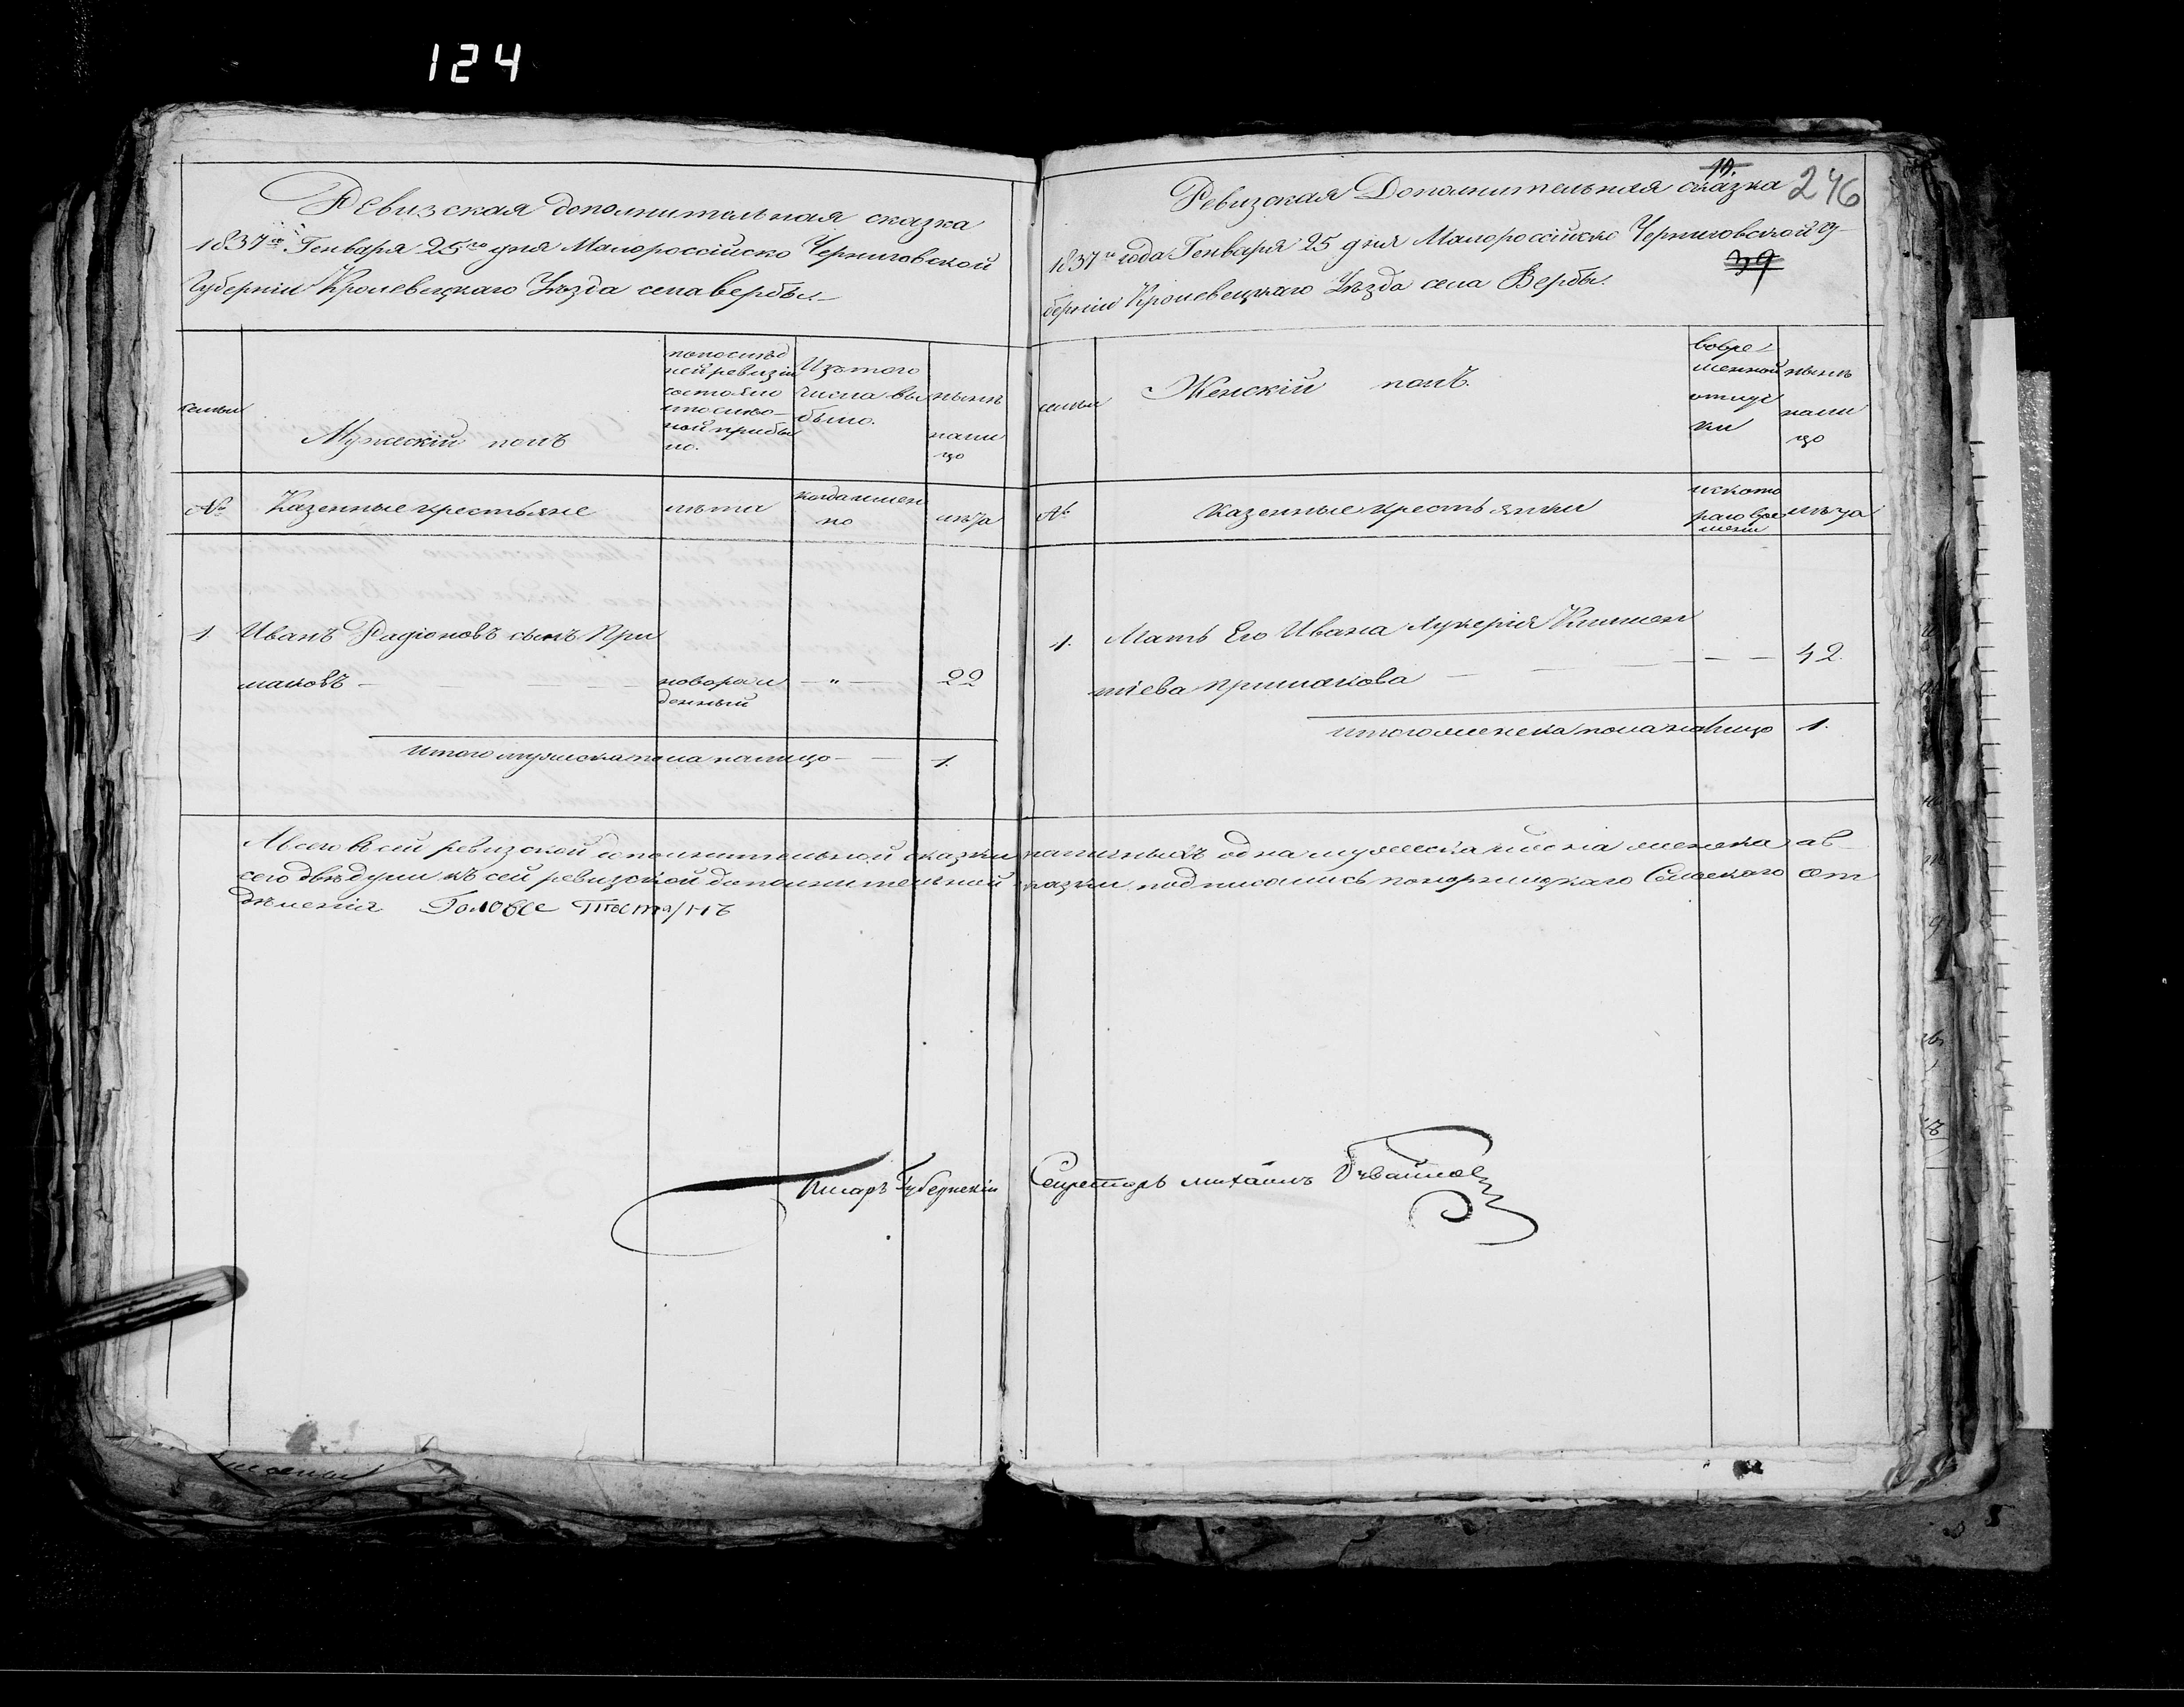 124
Ревизская дополнительная сказка
1837го Генваря 25го дня Малороссійско Черниговской
Губерніи Кролевецкаго Уѣзда села вербы
семьи
Мужескій полъ
попослѣд
ней ревизіи
состояло
ной прибы
ло.
Изътого
числа вы
было.
нынѣ
нали
цо
№
Казенные крестьяне
лѣта
когда имен
но
лѣта
1 Иванъ Радіоновъ сынъ При
маковъ — новорож — " — 22
денный
итого мужеска пола налицо — 1.
10.
246
Ревизская Дополнительная сказка
1837го года Генваря 25 дня Малороссійско Черниговской Гу-
39
берніи Кролевецкаго Уѣзда села Вербы.
семьи
Женскій полъ.
вовре-
менной
отлуч
ки
нынѣ
нали
цо
№
Казенные крестьянки
иското
раго вре
мени
лѣта
1. Мать Его Ивана Лукерія Климен
тіева Примакова — — — 42
итого женска пола налицо 1.
Авсего въ сей ревизской дополнительной сказки наличныхъ одна мужеска и одна женска ав
сего двѣ души къ сей ревизской дополнительной сказки подписались понорницкаго Сельского от
дѣленія Голова
Писарь Губернскій Секретарь михаилъ